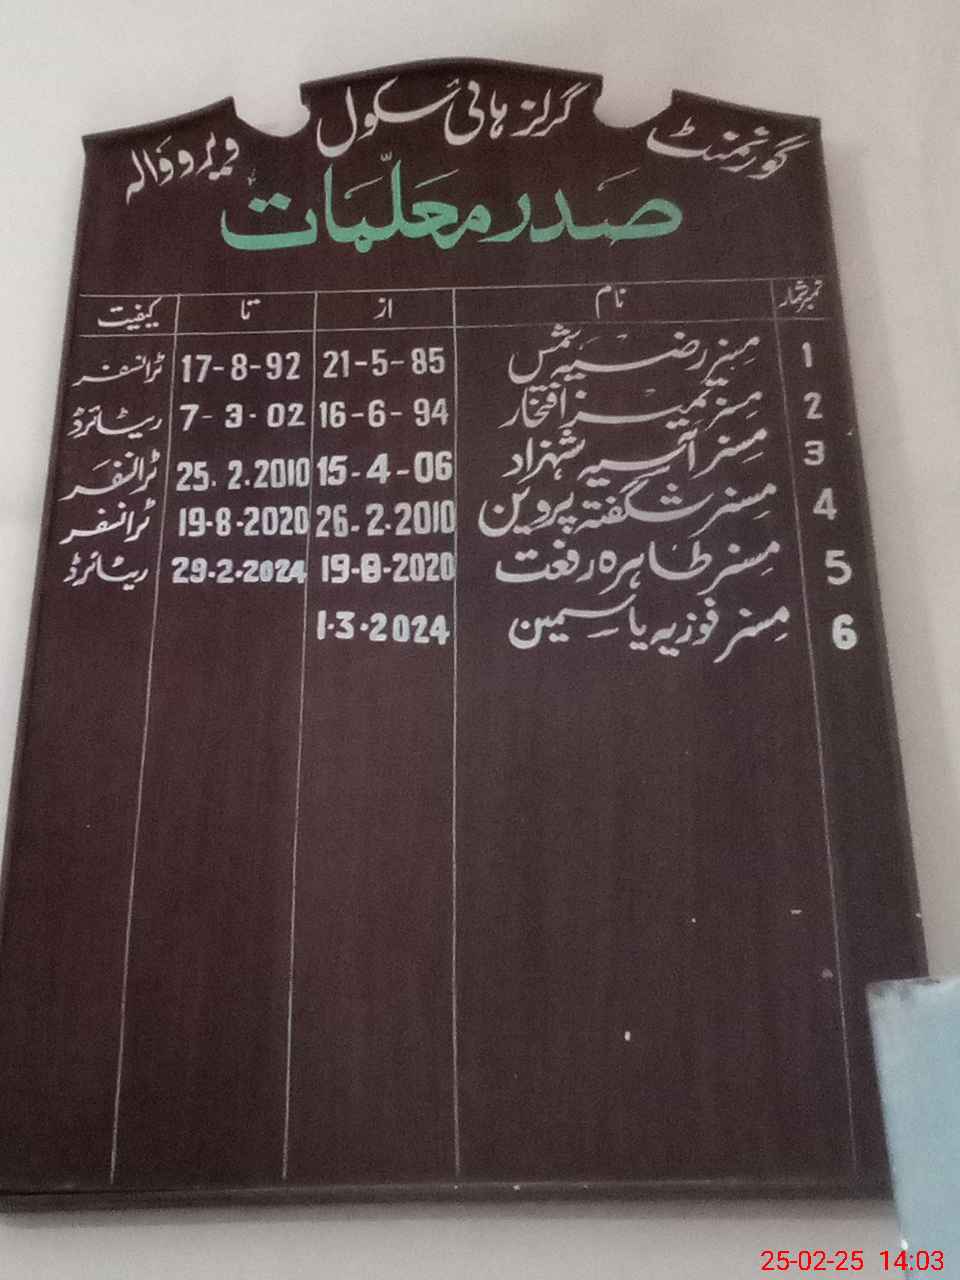 گورنمنٹ گرلز ہائی سکول ویرووالہ
صدر معلمات
نمبر شمار نام از تا کیفیت
1 مسز رضیہ شمس 21-5-85 17-8-92 ٹرانسفر
2 مسز تمیز افتخار 16-6-94 7-3-02 ریٹائرڈ
3 مسز آسیہ شہزاد 15-4-06 25.2.2010 ٹرانسفر
4 مسز شگفتہ پروین 26.2.2010 19-8-2020 ٹرانسفر
5 مسز طاہرہ رفعت 19-8-2020 29-2-2024 ریٹائرڈ
6 مسز فوزیہ یاسمین 1-3-2024
25-02-25 14:03